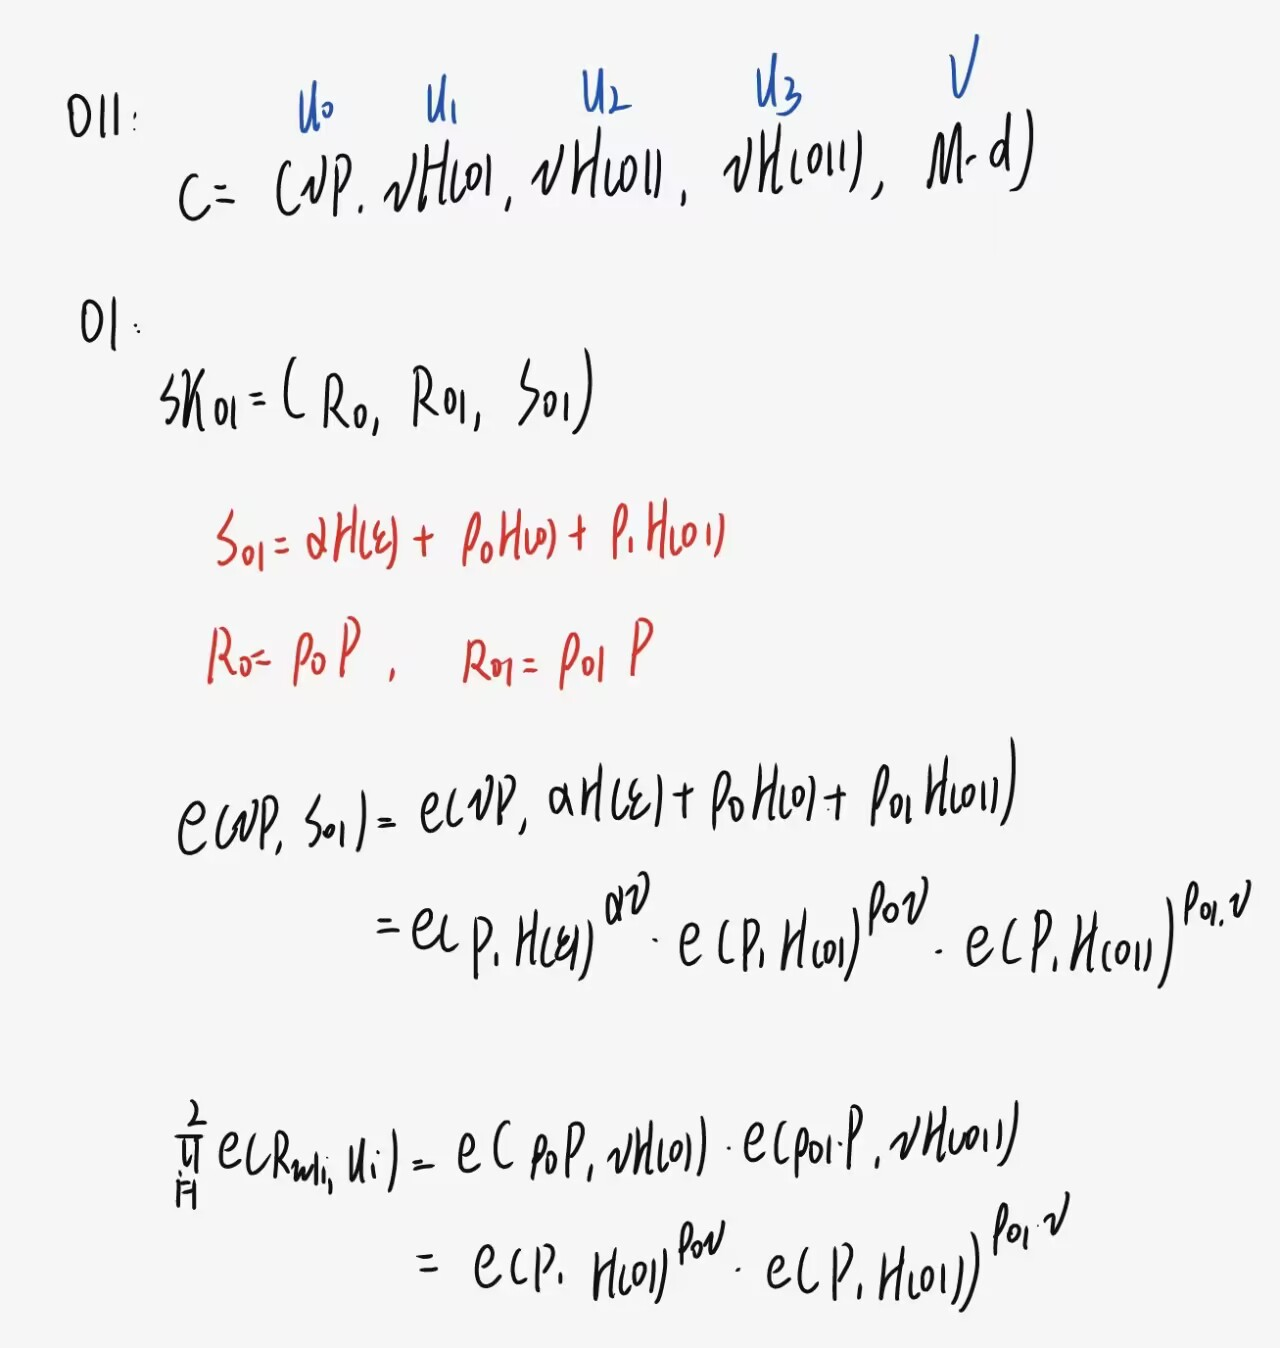 U₀ U₁ U₂ U₃ V
011:
C = (νP, νH(0), νH(01), νH(011), M·d)
01:
SK₀₁ = (R₀, R₀₁, S₀₁)
S₀₁ = αH(ε) + ρ₀H(0) + ρ₁H(01)
R₀ = ρ₀P, R₀₁ = ρ₀₁ P
e(νP, S₀₁) = e(νP, αH(ε) + ρ₀H(0) + ρ₀₁H(01))
= e(P, H(ε))^{αν} · e(P, H(0))^{ρ₀ν} · e(P, H(01))^{ρ₀₁·ν}
∏_{i=1}^{2} e(R_{w|i}, U_i) = e(ρ₀P, νH(0)) · e(ρ₀₁·P, νH(01))
= e(P, H(0))^{ρ₀ν} · e(P, H(01))^{ρ₀₁·ν}